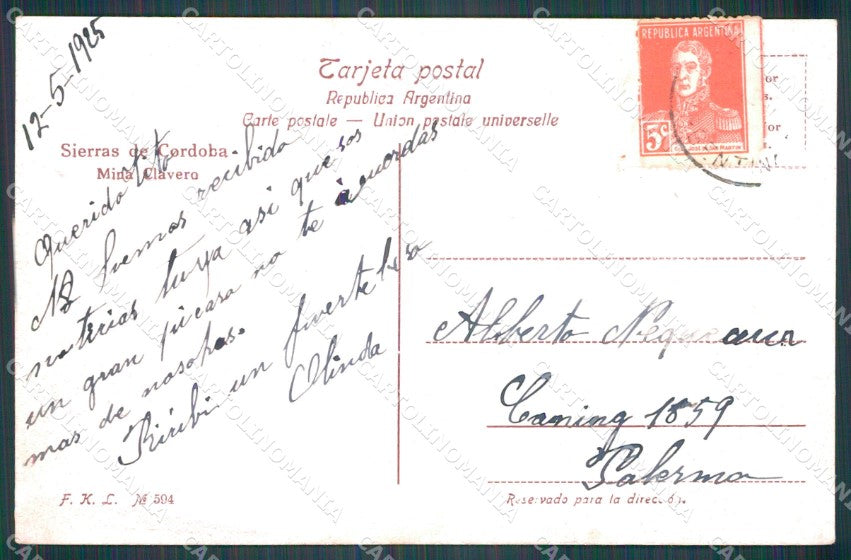 12-5-1925
Tarjeta postal
Republica Argentina
Carte postale — Union postale universelle
Sierras de Cordoba
Mina Clavero
Querido tito
No hemos recibido
noticias tuya asi que sos
un gran picaro no te acuordas
mas de nosotros.
Ricibi un fuerte beso
Olinda
F. K. L. № 594
REPUBLICA ARGENTINA
5c
JOSE DE SAN MARTIN
or
s.
or
Alberto
Caning 1859
Palermo
Reservado para la dirección.
CARTOLINOMANIA